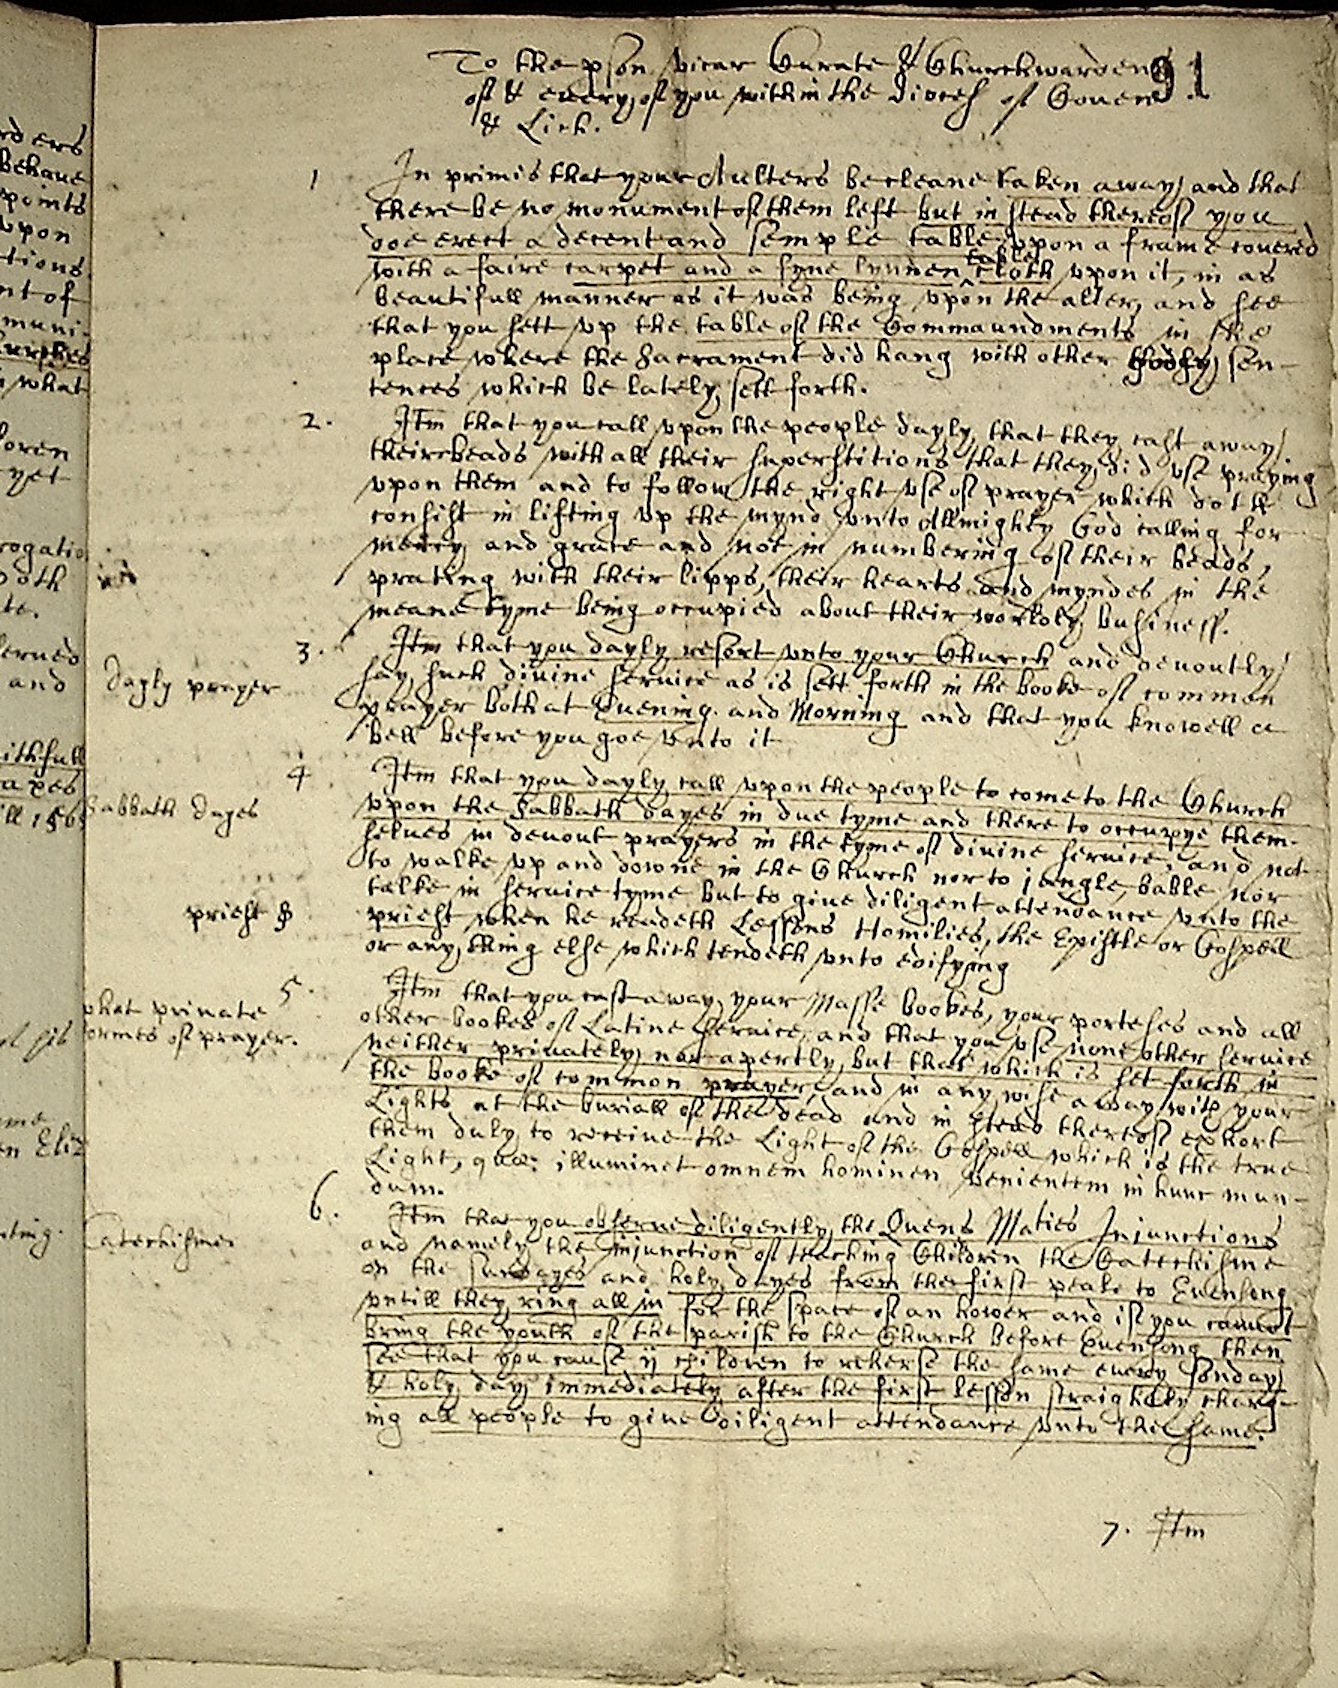 91
To the pson vicar Curate & Churchwardens
of & every of you within the dioces of Coven
& Lich.
1 In primis that your Aulters be cleane taken away and that
there be no monument of them left but in stead thereof you
doe erect a decent and semple table vpon a frame covered
with a faire carpet and a fyne lynnen table cloth vpon it, in as
beautifull manner as it was being vpon the alter, and see
that you sett vp the table of the Commaundments in the
place where the Sacrament did hang with other godly sen-
tences which be lately sett forth.
2. Itm that you call vpon the people dayly that they cast away
their beads with all their superstitions that they did vse praying
vpon them and to follow the right vse of prayer which doth
consist in lifting vp the mynd vnto Allmighty God calling for
mercy and grace and not in numbering of their beads,
prating with their lipps, their hearts and myndes in the
meane tyme being occupied about their worldly businesse.
3. Itm that you dayly resort vnto your Church and devoutly
say such divine service as is sett forth in the booke of common
prayer both at Evening and Morning and that you knowell a
bell before you goe vnto it
Dayly prayer
4 Itm that you dayly call vpon the people to come to the Church
vpon the Sabbath dayes in due tyme and there to occupye them-
selves in devout prayers in the tyme of divine service, and not
to walke vp and downe in the Church nor to jangle, bable nor
talke in service tyme but to give diligent attendance vnto the
priest when he readeth Lessons Homilies, the Epistle or Gospell
or any thing else which tendeth vnto edifying
Sabbath dayes
priest
5. Itm that you cast away your Masse bookes, your porteses and all
other bookes of Latine service, and that you vse none other service
neither privately nor apertly, but that which is set forth in
the booke of common prayer, and in any wise away with your
Lights at the buriall of the dead and in stead thereof exhort
them duly to receive the Light of the Gospell which is the true
Light, quae illuminet omnem hominem venientem in hunc mun-
dum.
what private
formes of prayer.
6. Itm that you observe diligently the Quens Maties Injunctions
and namely the injunction of teaching Children the Catechisme
on the sundayes and holy dayes from the first peale to Evensong
vntill they ring all in for the space of an hower and if you cannot
bring the youth of the parish to the Church before Evensong then
see that you cause ij children to reherse the same every Sonday
& holy day immediately after the first lesson straightly charg-
ing all people to give diligent attendance vnto the same.
Catechisme.
7. Itm